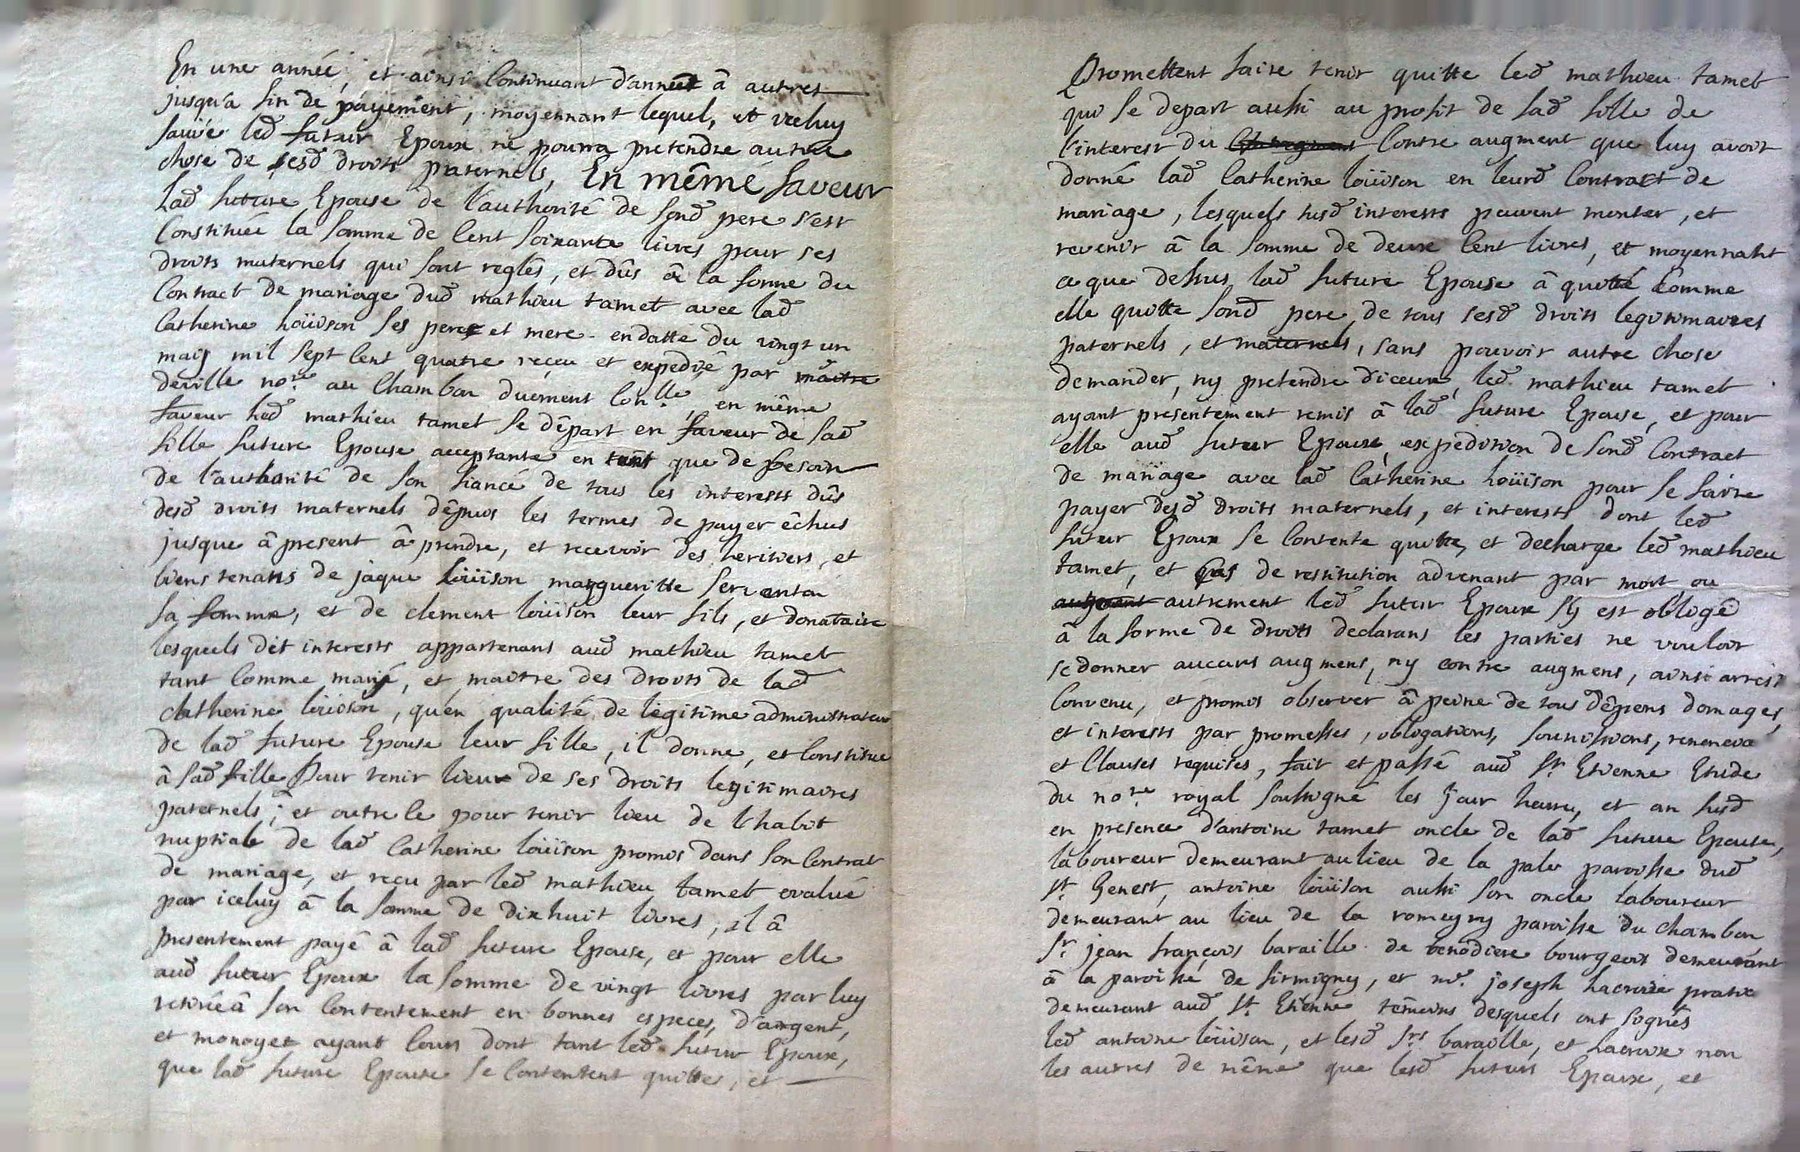 En une année, et ainsi Continuant d'année â autres
jusqu'a fin de payement, moyennant lequel, et iceluy
faivé led futur Epoux ne pourra pretendre autre
chose de sesd droits paternels, En même faveur
Lad future Epouse de l'authorité de sond pere s'est
Constituée la somme de Cent soixante livres pour ses
droits maternels qui sont reglés, et dûs â la forme du
Contract de mariage dud mathieu tamet avec lad
Catherine loüison ses pere et mere endatte du vingt un
may mil sept Cent quatre reçeu et expedié par maitre
deville nore au Chambon duement Conlle, en même
faveur led mathieu tamet se départ en faveur de sad
fille future Epouse acceptante en tant que de besoin
de l'authorité de son fiancé de tous les interests dûs
desd droits maternels dépuis les termes de payer êchus
jusque â present â prendre, et recevoir des heritiers, et
biens tenants de jaque loüison margueritte serventon
sa femme, et de clement loüison leur fils, et donataire
lesquels dit interests appartenans aud mathieu tamet
tant Comme marié, et maitre des droits de lad
Catherine loüison, qu'en qualité de legitime administrateur
de lad future Epouse leur fille, il donne, et Constitue
â sad fille Pour tenir lieux de ses droits legitimaires
paternels; et outre le pour tenir lieu de l'habit
nuptiale de lad Catherine loüison promis dans son Contrat
de mariage, et reçu par led mathieu tamet evalué
par iceluy â la somme de dix huit livres, il â
presentement payé â lad future Epouse, et pour elle
aud futur Epoux la somme de vingt livres par luy
retirée â son Contentement en bonnes especes, d'argent,
et monoyes ayant Cours dont tant led futur Epoux,
que lad future Epouse se Contentent quitte, et
Promettent faire tenir quitte led mathieu tamet
qui se depart aussi au profit de sad fille de
l'interest du Contre augment que luy avoit
donné lad Catherine loüison en leurd Contract de
mariage, lesquels susd interests peuvent monter, et
revenir â la somme de deux Cent livres, et moyennant
ce que dessus lad future Epouse â quitté Comme
elle quitte sond pere de tous sesd droits legitimaires
paternels, et maternels, sans pouvoir autre chose
demander, ny pretendre d'iceux, led mathieu tamet
ayant presentement remis â lad future Epouse, et pour
elle aud futur Epoux expedition de sond Contract
de mariage avec lad Catherine loüison pour se faire
payer desd droits maternels, et interests dont led
futur Epoux se Contente quitte, et decharge led mathieu
tamet, et Cas de restitution advenant par mort ou
autrement led futur Epoux s'y est obligé
â la forme de droits declarans les parties ne vouloir
se donner aucuns augmens, ny contre augmens, ainsi arresté
Convenu, et promis observer â peine de tous dêpens domages,
et interests par promesses, obligations, soumissions, renonca
et Clauses requises, fait et passé aud St Etienne Etude
du nore royal soussigné les jour heure, et an susd
en presence d'antoine tamet oncle de lad future Epouse,
laboureur demeurant au lieu de la pale paroisse dud
St Genest, antoine loüison aussi son oncle laboureur
demeurant au lieu de la romeyry paroisse du chambon
Sr jean françois baraille de benodiere bourgeois demeurant
â la paroisse de firmigny, et mr. joseph Lacroix pratn
demeurant aud St Etienne têmoins desquels ont signés
led antoine loüison, et lesd Srs baraille, et Lacroix non
les autres de même que lesd futurs Epoux, et